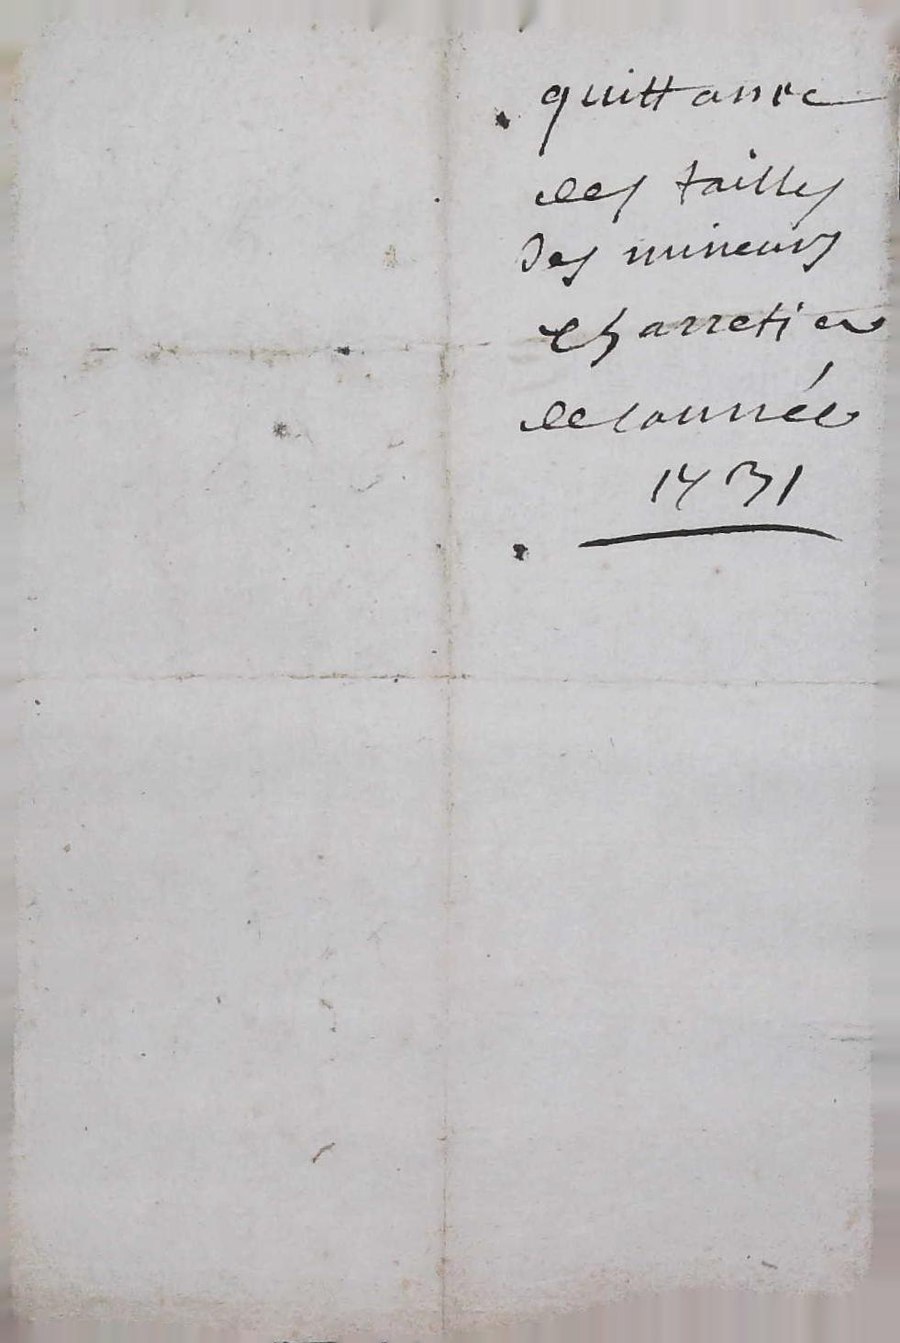 quittance
des tailles
des mineurs
charretier
de lannée
1731